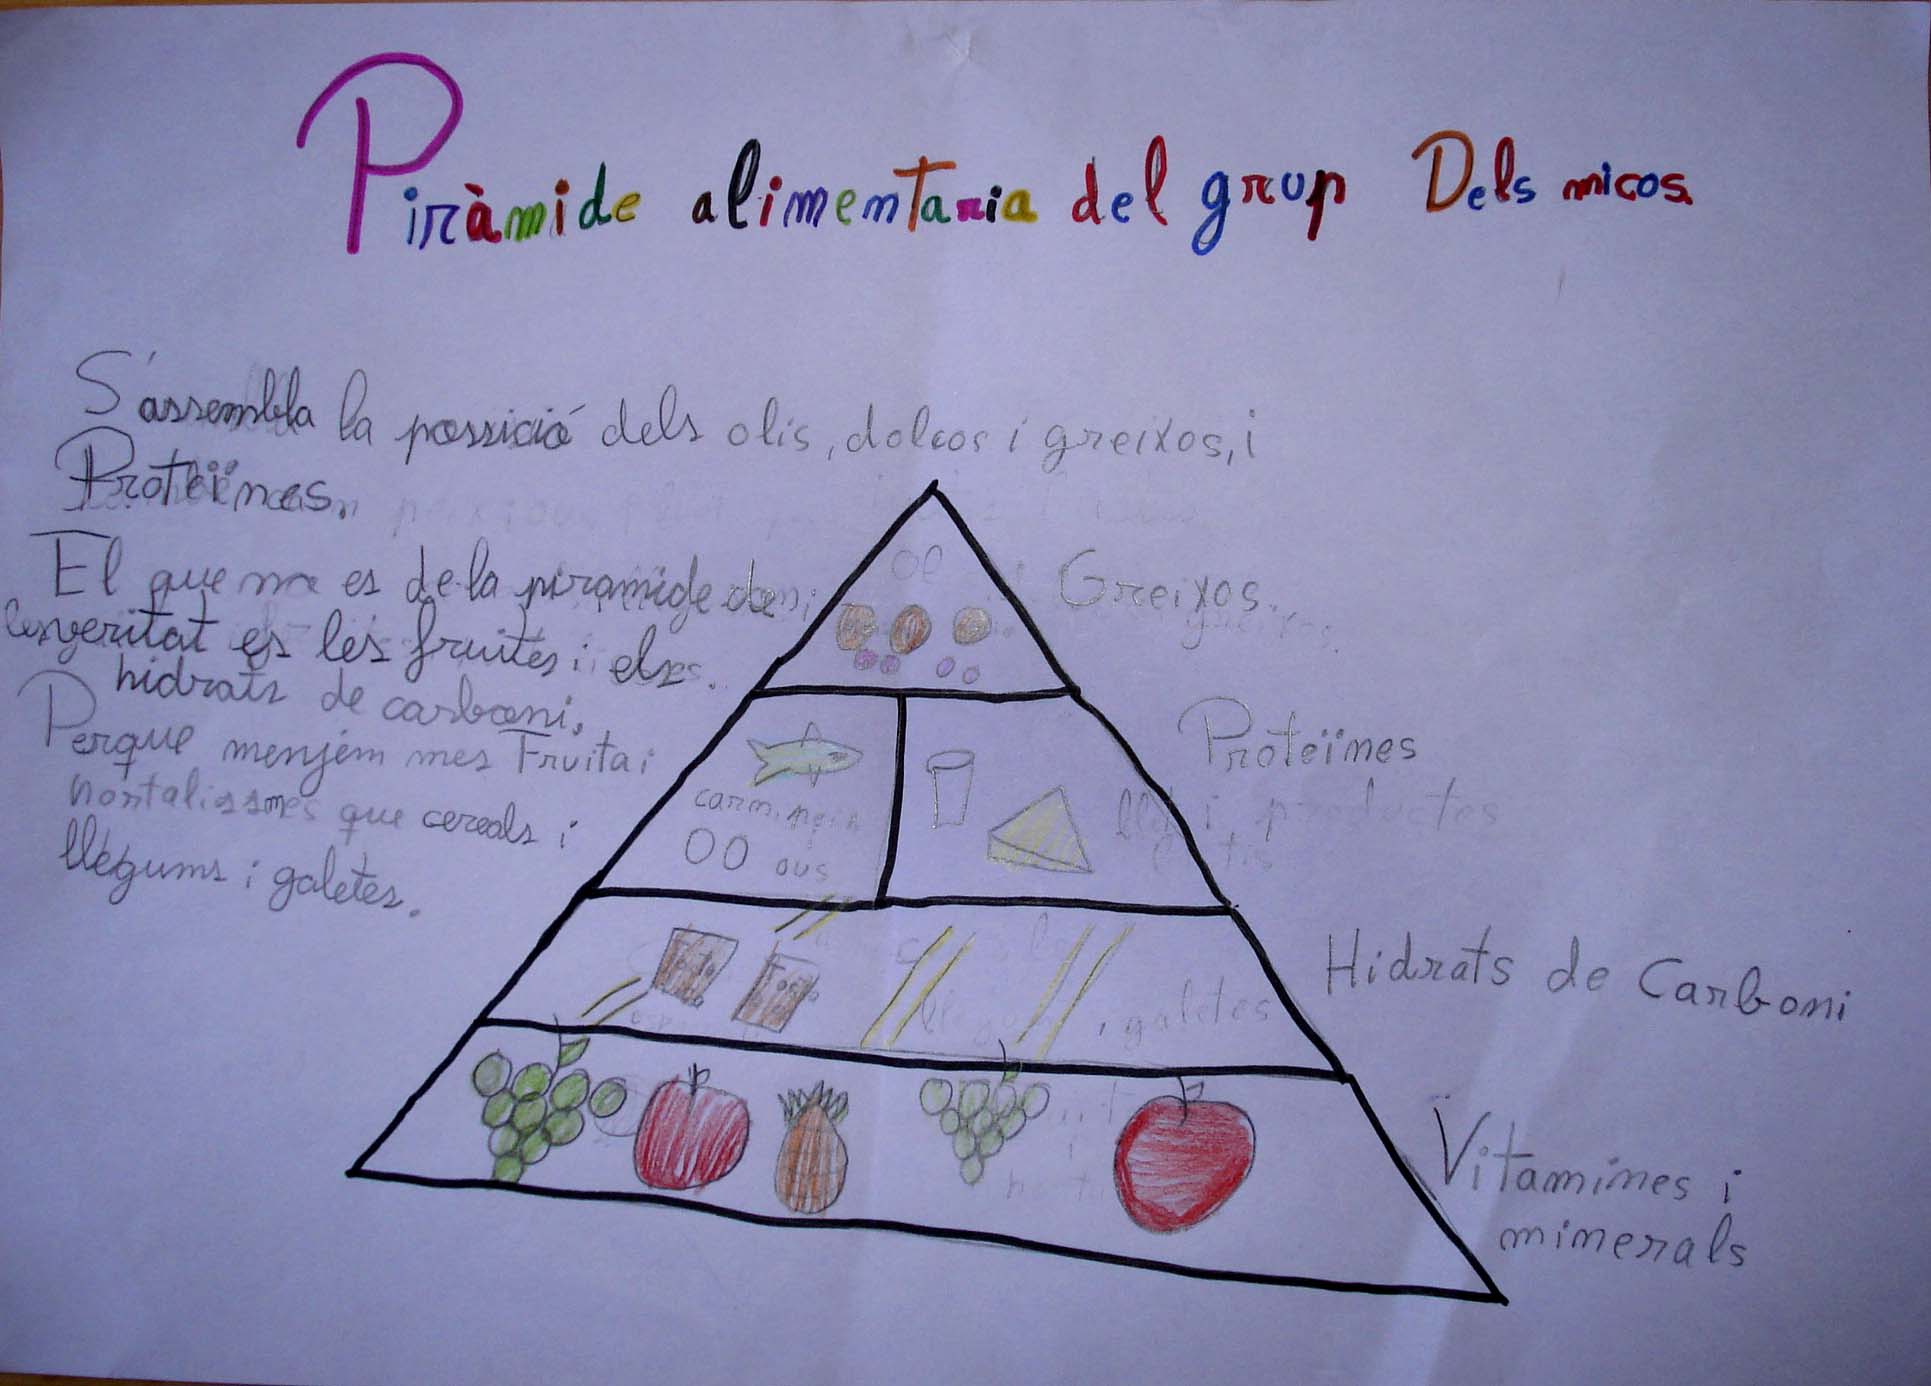 Piràmide alimentaria del grup Dels micos.
S'assembla la possició dels olis, dolços i greixos, i
Proteïnes.
El que no es de la piramide de
es veritat es les fruites i els
hidrats de carboni.
Perque menjem mes Fruita i
hortalisses que cereals i
llegums i galetes.
Greixos.
Proteïnes
carn, peix
ous
productes
Hidrats de Carboni
i galetes
Vitamines i
minerals